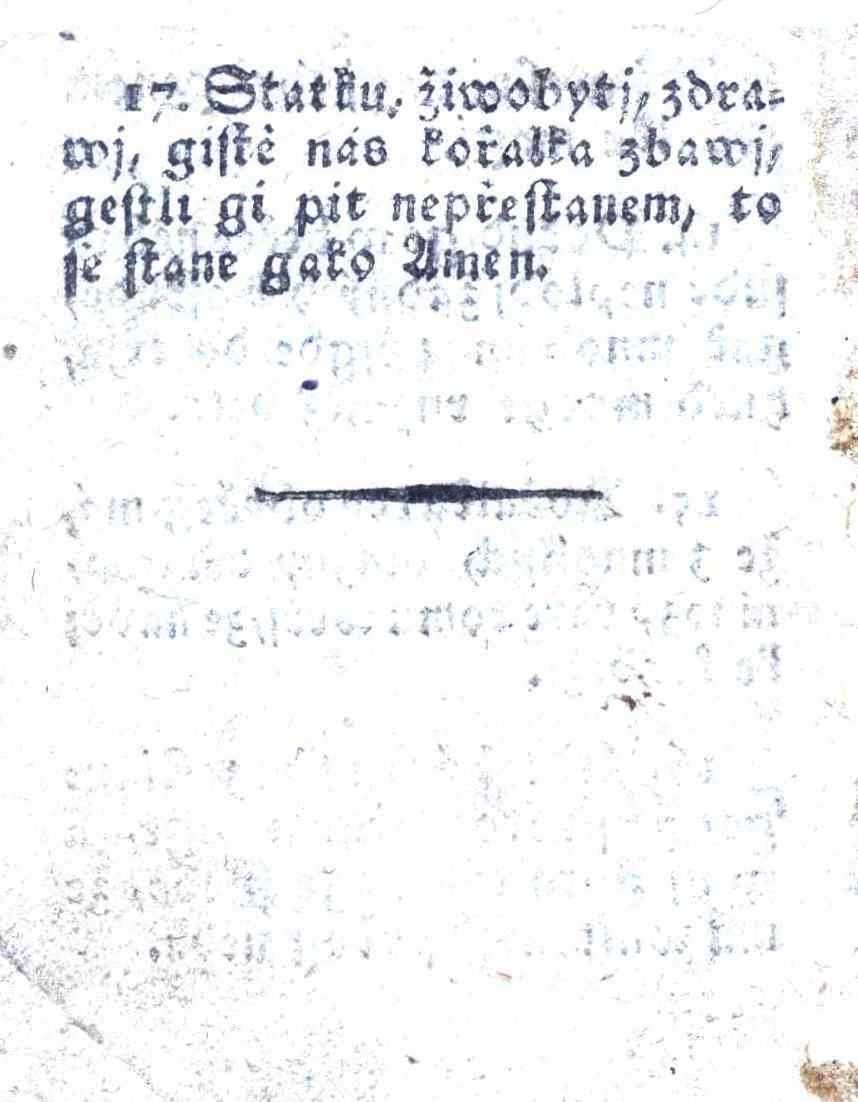 17. Statku, žiwobytj, zdra-
wj, gistě nás kořalka zbawj,
gestli gi pit nepřestanem, to
se stane gako Amen.